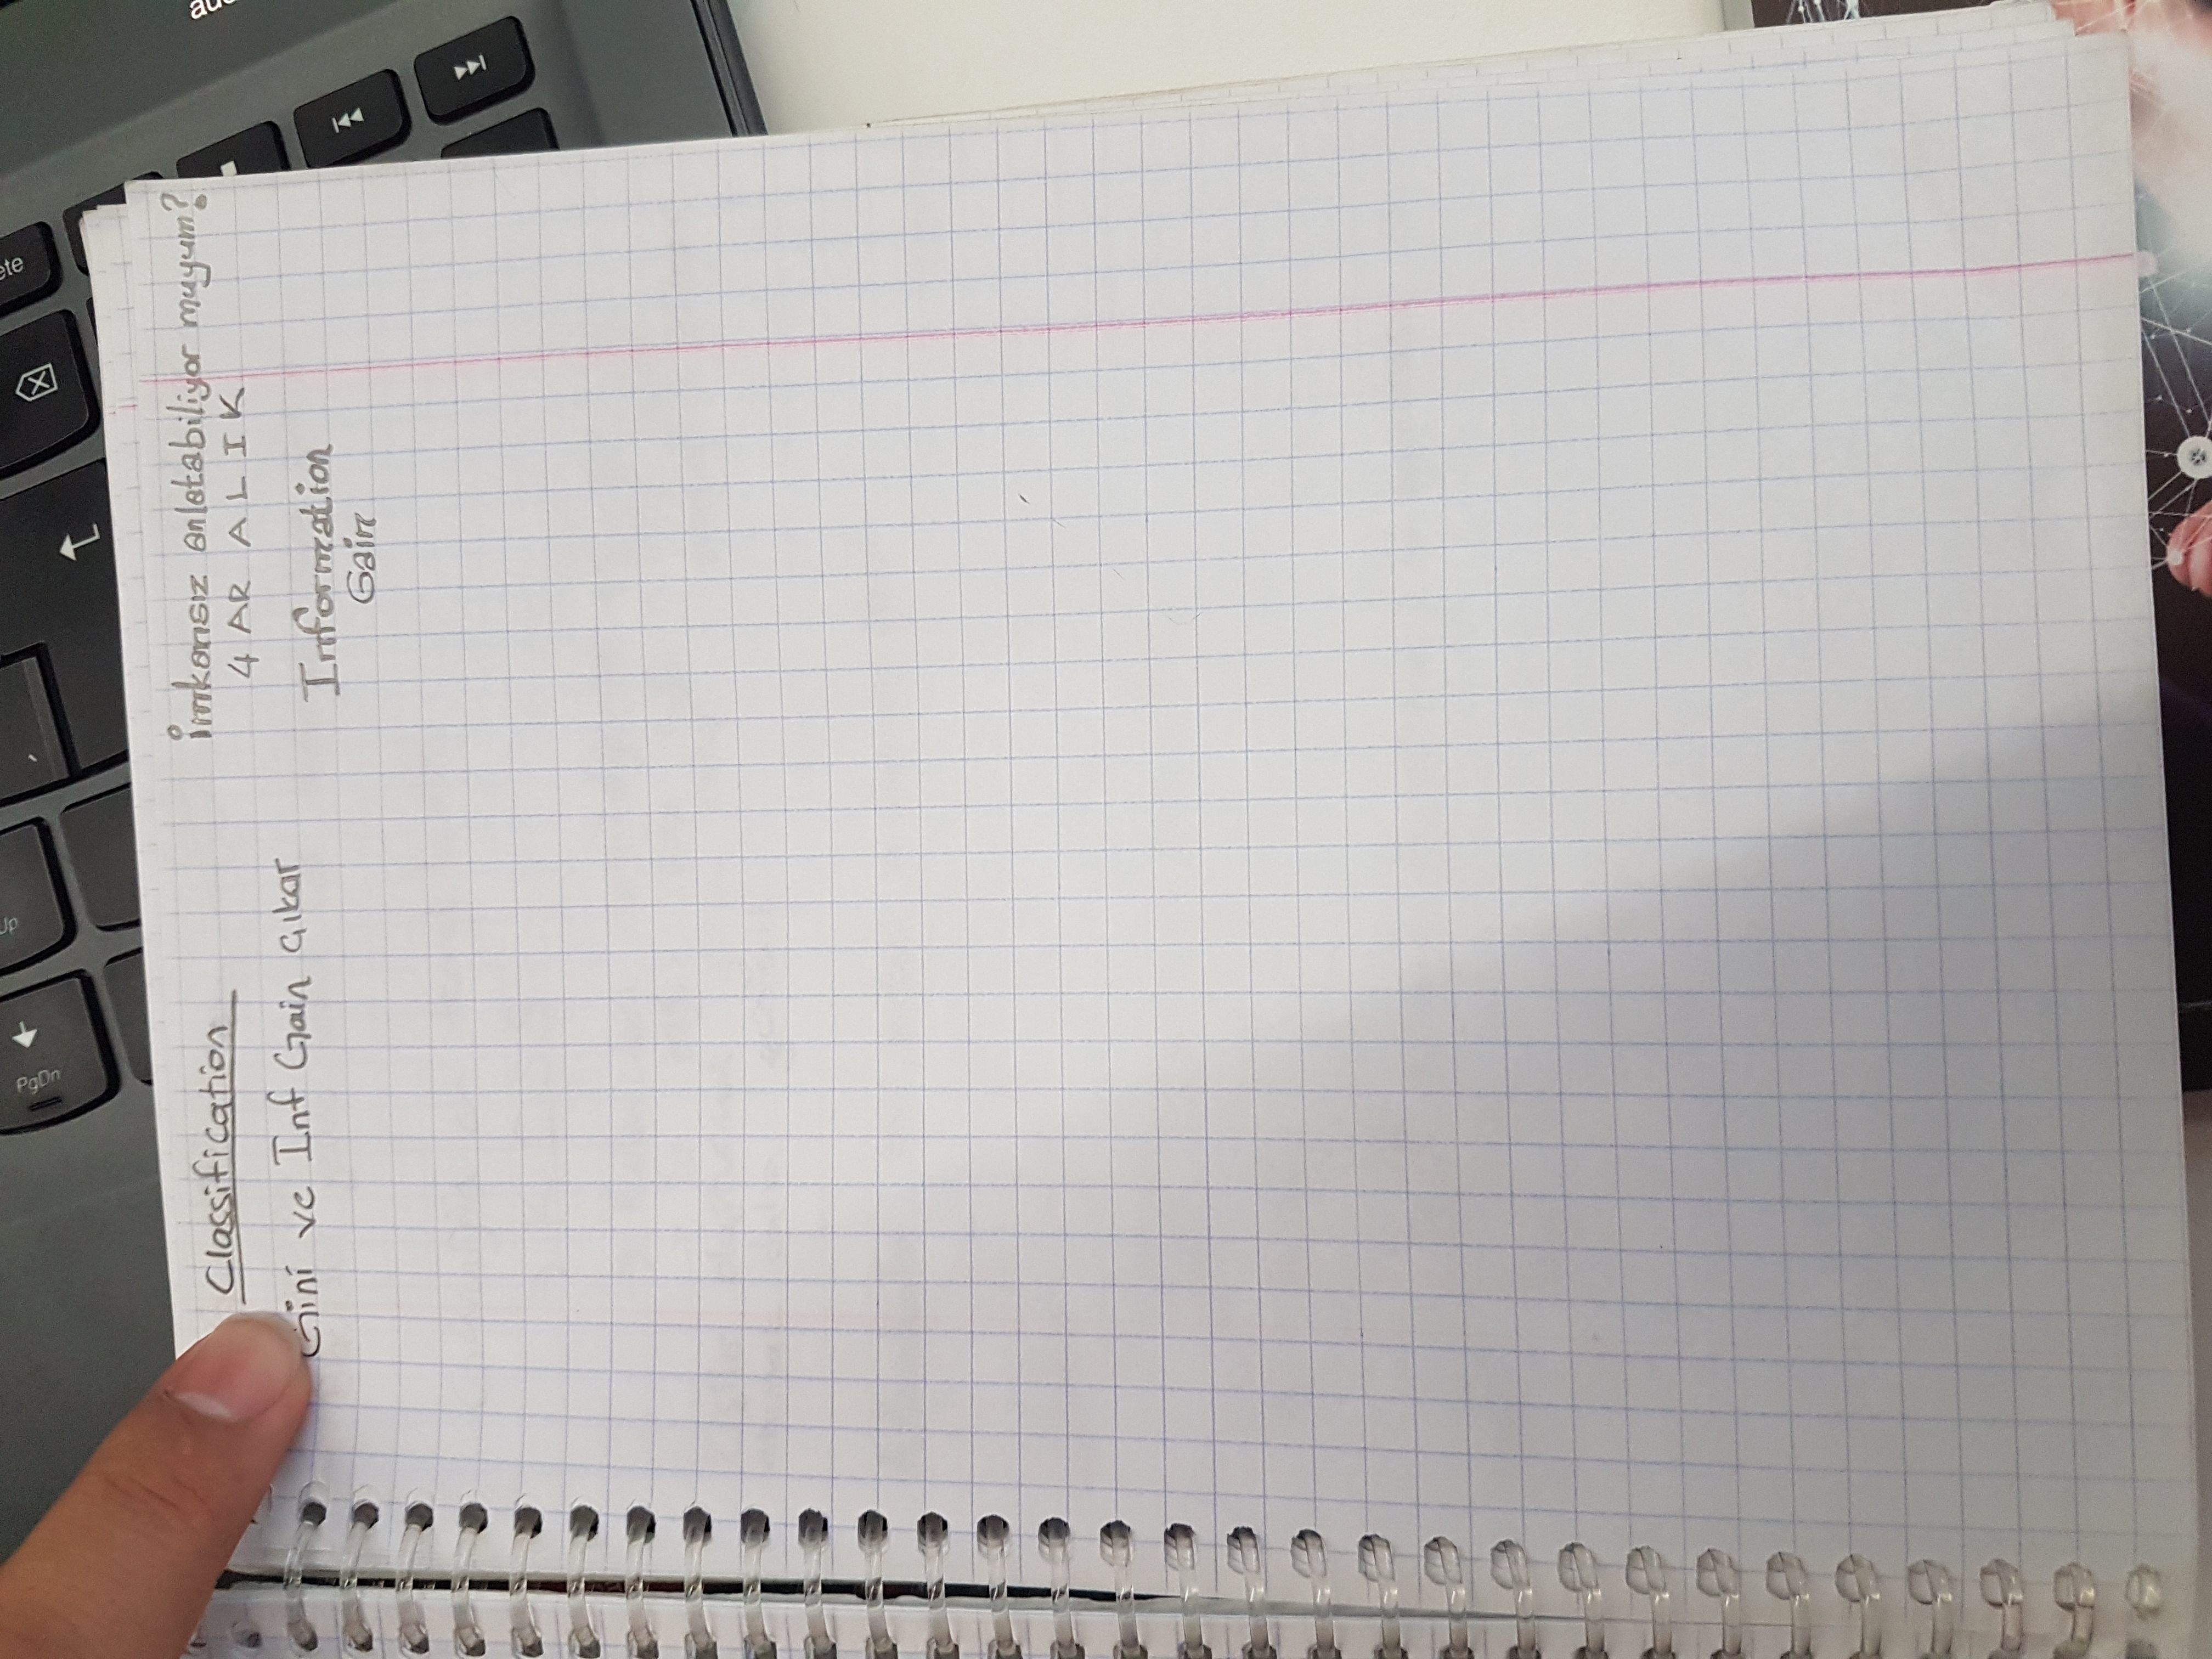 Classification
Gini ve Inf Gain çıkar
İmkansız anlatabiliyor muyum?
4 ARALIK
Information
Gain
PgDn
Up